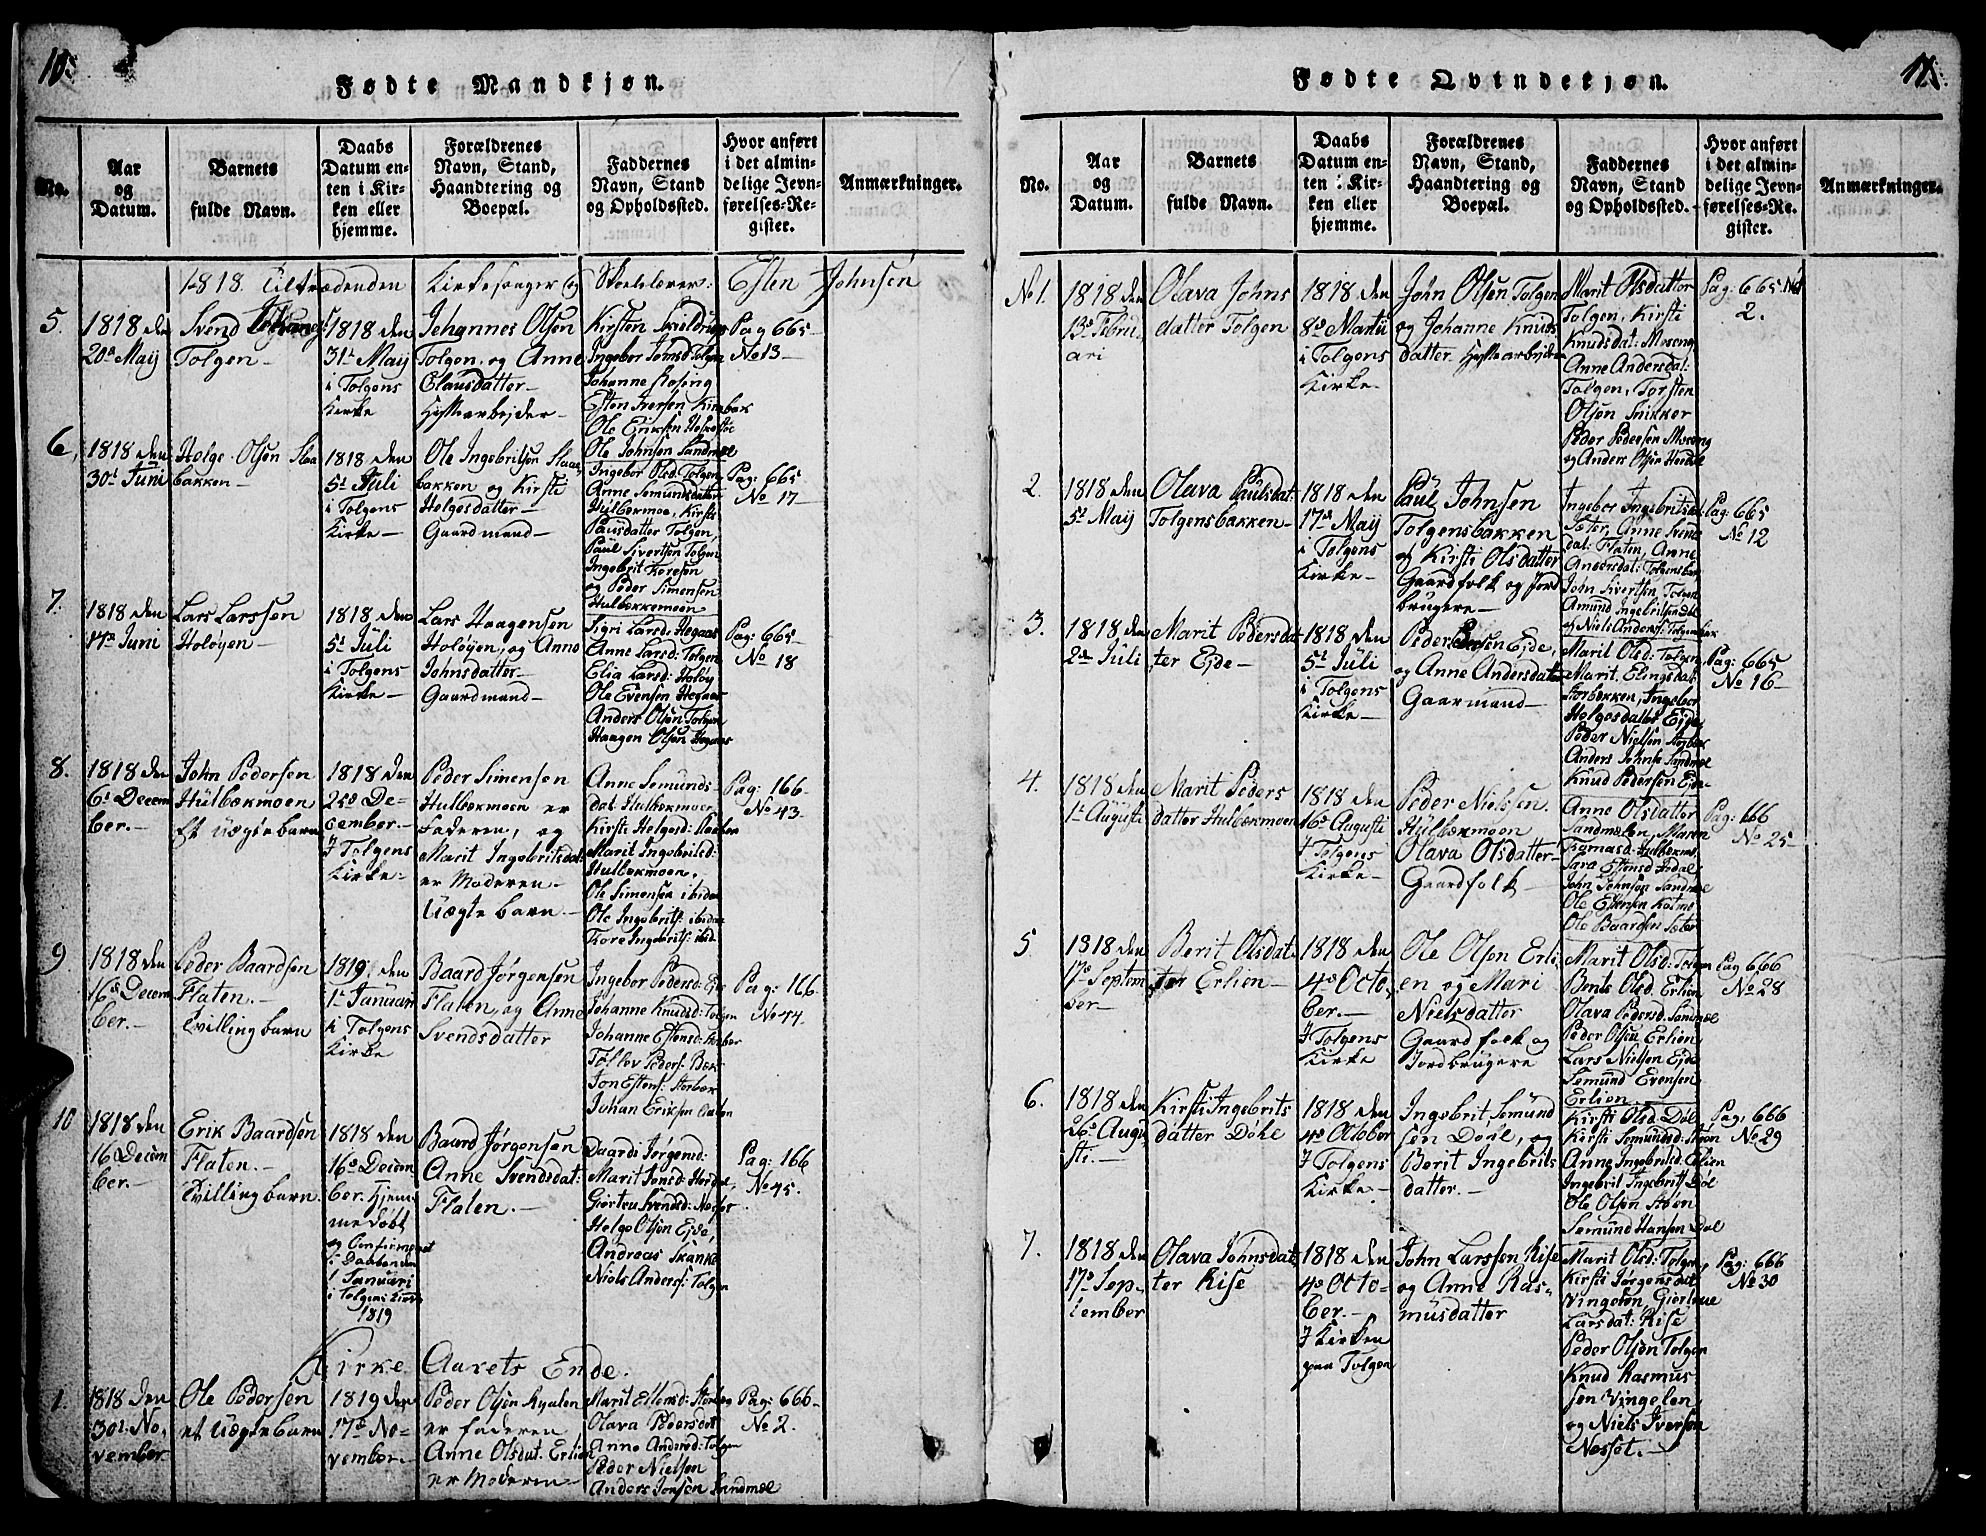 10.
Fødte Mandkjøn.
No.
Aar
og
Datum.
Barnets
fulde Navn.
Daabs
Datum en-
ten i Kir-
ken eller
hjemme.
Forældrenes
Navn, Stand,
Haandtering og
Boepæl.
Faddernes
Navn, Stand
og Opholdssted.
Hvor anført
i det almin-
delige Jevn-
førelses-Re-
gister.
Anmærkninger.
1818. Tiltrædenden Kirkesanger og Skoelelærer: Esten Johnsen
5.
1818 den
20de Maij
Svend
Tolgen
1818 den
31te Maij
i Tolgens
Kirke
Johannes Olsen
Tolgen, og Anne
Clausdatter
Hyttearbejder
Kirsten
Ingebor Jonsd: Tolgen
Johanne Rosing
Esten Iversen
Ole Eriksen
Ole Johnsen Sandmæl
Pag 665
No 13
6.
1818 den
30te Juni
Helge Olsen Slaa
bakken
1818 den
5te Juli
i Tolgens
Kirke
Ole Ingebritsen Slaa
bakken og Kirsti
Helgesdatter
Gaardmand
Ingebor Olsd. Tolgen
Anne Semundsdatter
Hulbækmoe, Kirsti
Paulsdatter Tolgen
Paul Sivertsen Tolgen
Ingebrit Toresen
og Peder Simensen
Hulbækkemoen
Pag: 665
No 17
7.
1818 den
17de Juni
Lars Larssen
Holøyen
1818 den
5te Juli
i Tolgens
Kirke
Lars Haagensen
Holøyen, og Anne
Johnsdatter
Gaardmand
Sigri Larsd. Hegaas
Anne Larsd: Tolgen
Elia Larsd: Holøy
Ole Evensen Hegaas
Anders Olsen Tolgen
Haagen Olsen Hegaas
Pag: 665
No 18
8.
1818 den
6te Decem
ber.
John Pedersen
Hulbækmoen
Et Uægte barn
1818 den
25de De-
cember.
I Tolgens
Kirke
Peder Simensen
Hulbækmoen er
Faderen, og
Marit Ingebritsdat:
er Moderen
Uægte barn
Anne Semunds
dat. Hulbækmoen
Kirsti Helgesd:
Marit Ingebritsd:
Hulbækmoen,
Ole Simensen ibidem
Ole Ingebrits: ibidem
Tore Ingebrits: ibid
Pag: 166.
No 43.
9
1818 den
16de Decem
ber.
Peder Baardsen
Flaten.
Tvillingbarn
1819. den
1te Januari
i Tolgens
Kirke
Baard Jørgensen
Flaten, og Anne
Svendsdatter
Ingebor Pedersd:
Johanne Knudsd: Tolgen
Johanne Estensd:
Tollev Peders:
Jon Estens: Storbæk
Johan Eriksen
Pag: 166.
No 44.
10
1818 den
16 Decem
ber.
Erik Baardsen
Flaten.
Tvillingbarn.
1818 den
16de Decem
ber. Hjem-
me døbt
og Confirmeret
i Daaben den
1 Januari
i Tolgens Kirke
1819
Baard Jørgensen
Anne Svendsdat:
Flaten.
Jørgensd:
Marit Jonsd:
Giertru Svensd:
Helge Olsen Ejde,
Andreas Skanke
Niels Anders: Tolgen
Pag: 166
No 45.
Kirke Aarets Ende.
1.
1818 den
30te No-
vember
Ole Pedersen
et Uægte barn
1819 den
17de No-
vember.
Peder Olsen
er faderen
Anne Olsdat. Erlien
er Moderen
Marit Ellensd:
Olava Pedersdat
Anne Andersd: Tolgen
Peder Nielsen
Anders Jonsen Sandmæl
Pag: 666
No 2.
11.
Fødte Qvindekjøn.
No.
Aar
og
Datum.
Barnets
fulde Navn.
Daabs
Datum en-
ten i Kir-
ken eller
hjemme.
Forældrenes
Navn, Stand,
Haandtering og
Boepæl.
Faddernes
Navn, Stand
og Opholdssted.
Hvor anført
i det almin-
delige Jevn-
førelses-Re-
gister.
Anmærkninger.
No 1.
1818 den
13de Febru
ari
Olava Johns
datter Tolgen
1818 den
8de Martii
i Tolgens
Kirke
John Olsen Tolgen
og Johanne Knuds
datter. Hyttearbejder
Marit Olsdatter
Tolgen, Kirsti
Knudsdat: Moseng
Anne Andersdat:
Tolgen, Torsten
Olsen Snikker
Peder Pedersen Moseng
og Anders Olsen
Pag: 665 No
2.
2.
1818 den
5te Maij
Olava Paulsdat:
Tolgensbakken
1818 den
17de Maij
i Tolgens
Kirke
Paul Johnsen
Tolgensbakken
og Kirsti Olsdatter
Gaardfolk og Jord
brugere
Ingebor Ingebritsdat:
Anne Svens
dat: Flaten, Anne
Andersdat: Tolgensbak
John Sivertsen, Tolgen
Amund Ingebritsen
og Niels Anders: Tolgensbak
Pag: 665
No 12
3.
1818 den
2den Juli
Marit Pedersdat
ter Ejde
1818 den
5te Juli
i Tolgens
Kirke
Peder Ejde,
og Anne Andersdatter
Gaarmand
Marit Olsd: Tolgen,
Marit Elingsdat:
Storbekken, Ingebor
Helgesdatter Ejde
Peder Nielsen Storbæk
Anders Johns: Sandmæl
Knud Pedersen Ejde
Pag: 665
No 16
4.
1818 den
1te Augusti
Marit Peders
datter Hulbækmoen
1818 den
16de Augusti
i Tolgens
Kirke
Peder Nielsen
Hulbækmoen
Olava Olsdatter
Gaardfolk
Anne Olsdatter
Sandmælen, Maren
Tomasd: Hulbækmo
Sara Estensd
John Johnsen Sandmæl
Ole Estensen
Ole Baardsen
Pag: 666
No 25
5
1818 den
17de Septem
ber
Berit Olsdat
ter Erlien
1818 den
4de Octo-
ber.
I Tolgens
Kirke
Ole Olsen Erli-
en og Mari
Nielsdatter
Gaardfolk og
Jordbrugere
Marit Olsd: Tolgen
Berit Olsd. Erlien
Olava Pedersd: Sandmæl
Peder Olsen Erlien
Lars Nielsen Ejde
Semund Evensen
Erlien
Pag 666
No 28
6.
1818 den
26de Augu
sti.
Kirsti Ingebrits
datter Døhl
1818 den
4de October
I Tolgens
Kirke
Ingebrit Semund
sen Døhl, og
Berit Ingebrits
datter.
Kirsti Olsd. Døl
Kirsti Semundsd:
Anne Ingebritsd: Erlien
Ingebrit Ingebrits Døl
Ole Olsen
Semund Hansen Døl
Pag. 666
No 29
7.
1818 den
17de Sep-
tember
Olava Johnsdat
ter Rise
1818 den
4de Octo-
ber.
I Kirken
paa Tolgen
John Larssen Rise
og Anne Ras-
musdatter
Marit Olsd: Tolgen,
Kirsti Jørgensdat
Vingelen, Giertrue
Larsdat: Rise
Peder Olsen Tolgen
Knud Rasmus
sen Vingelen
og Niels Iversen
Nesset.
Pag: 666
No 30